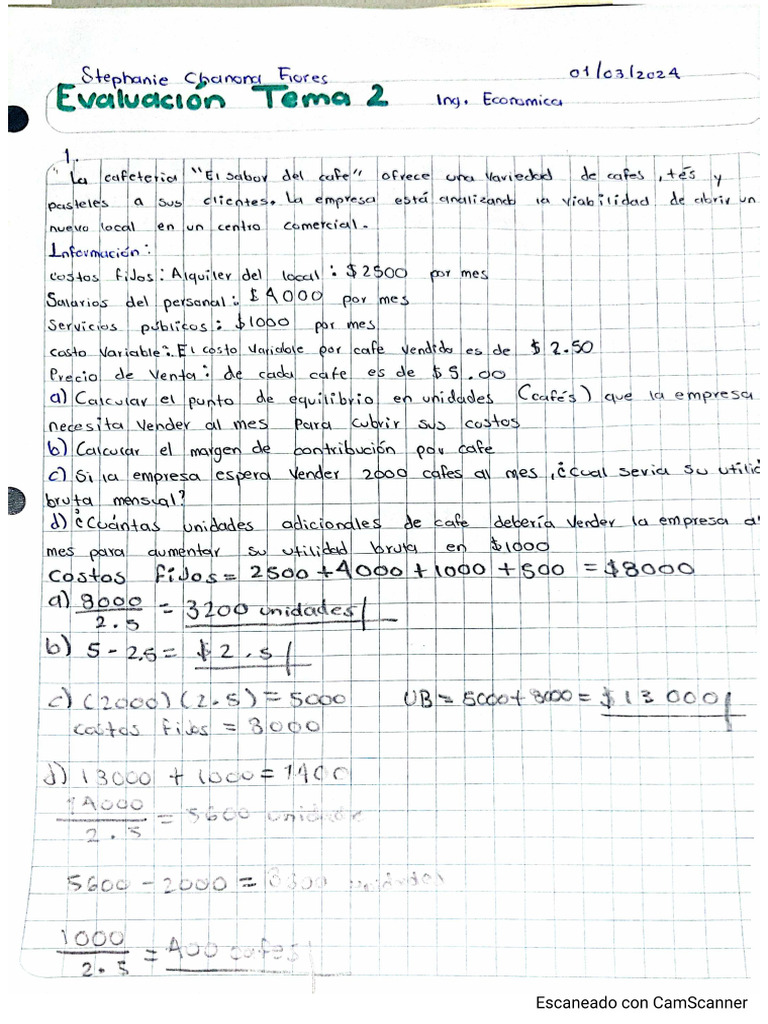 Stephanie Chanona Fiores
01/03/2024
Evaluación Tema 2
Ing. Economica
1.
"La cafeteria "El sabor del cafe" ofrece una variedad de cafes, tés y
pasteles a sus clientes. La empresa está analizando la viabilidad de abrir un
nuevo local en un centro comercial.
Información:
costos fijos: Alquiler del local: $2500 por mes
Salarios del personal: $4000 por mes
Servicios públicos: $1000 por mes
Costo Variable: El costo variable por cafe vendido es de $2.50
Precio de Venta: de cada cafe es de $5.00
a) Calcular el punto de equilibrio en unidades (cafés) que la empresa
necesita vender al mes para cubrir sus costos
b) Calcular el margen de contribución por cafe
c) Si la empresa espera vender 2000 cafes al mes, ¿cual seria su utilid
bruta mensual?
d) ¿Cuántas unidades adicionales de cafe debería vender la empresa a
mes para aumentar su utilidad bruta en $1000
Costos fijos = 2500 + 4000 + 1000 + 500 = $8000
a) 8000
2.5
= 3200 unidades
b) 5 - 2.5 = $2.5
c) (2000)(2.5) = 5000
UB = 5000 + 8000 = $13 000
costos fijos = 8000
d) 13000 + 1000 = 1400
14000
2.5
= 5600 unidade
5600 - 2000 = unidades
1000
2.5
= 400 cafes
Escaneado con CamScanner